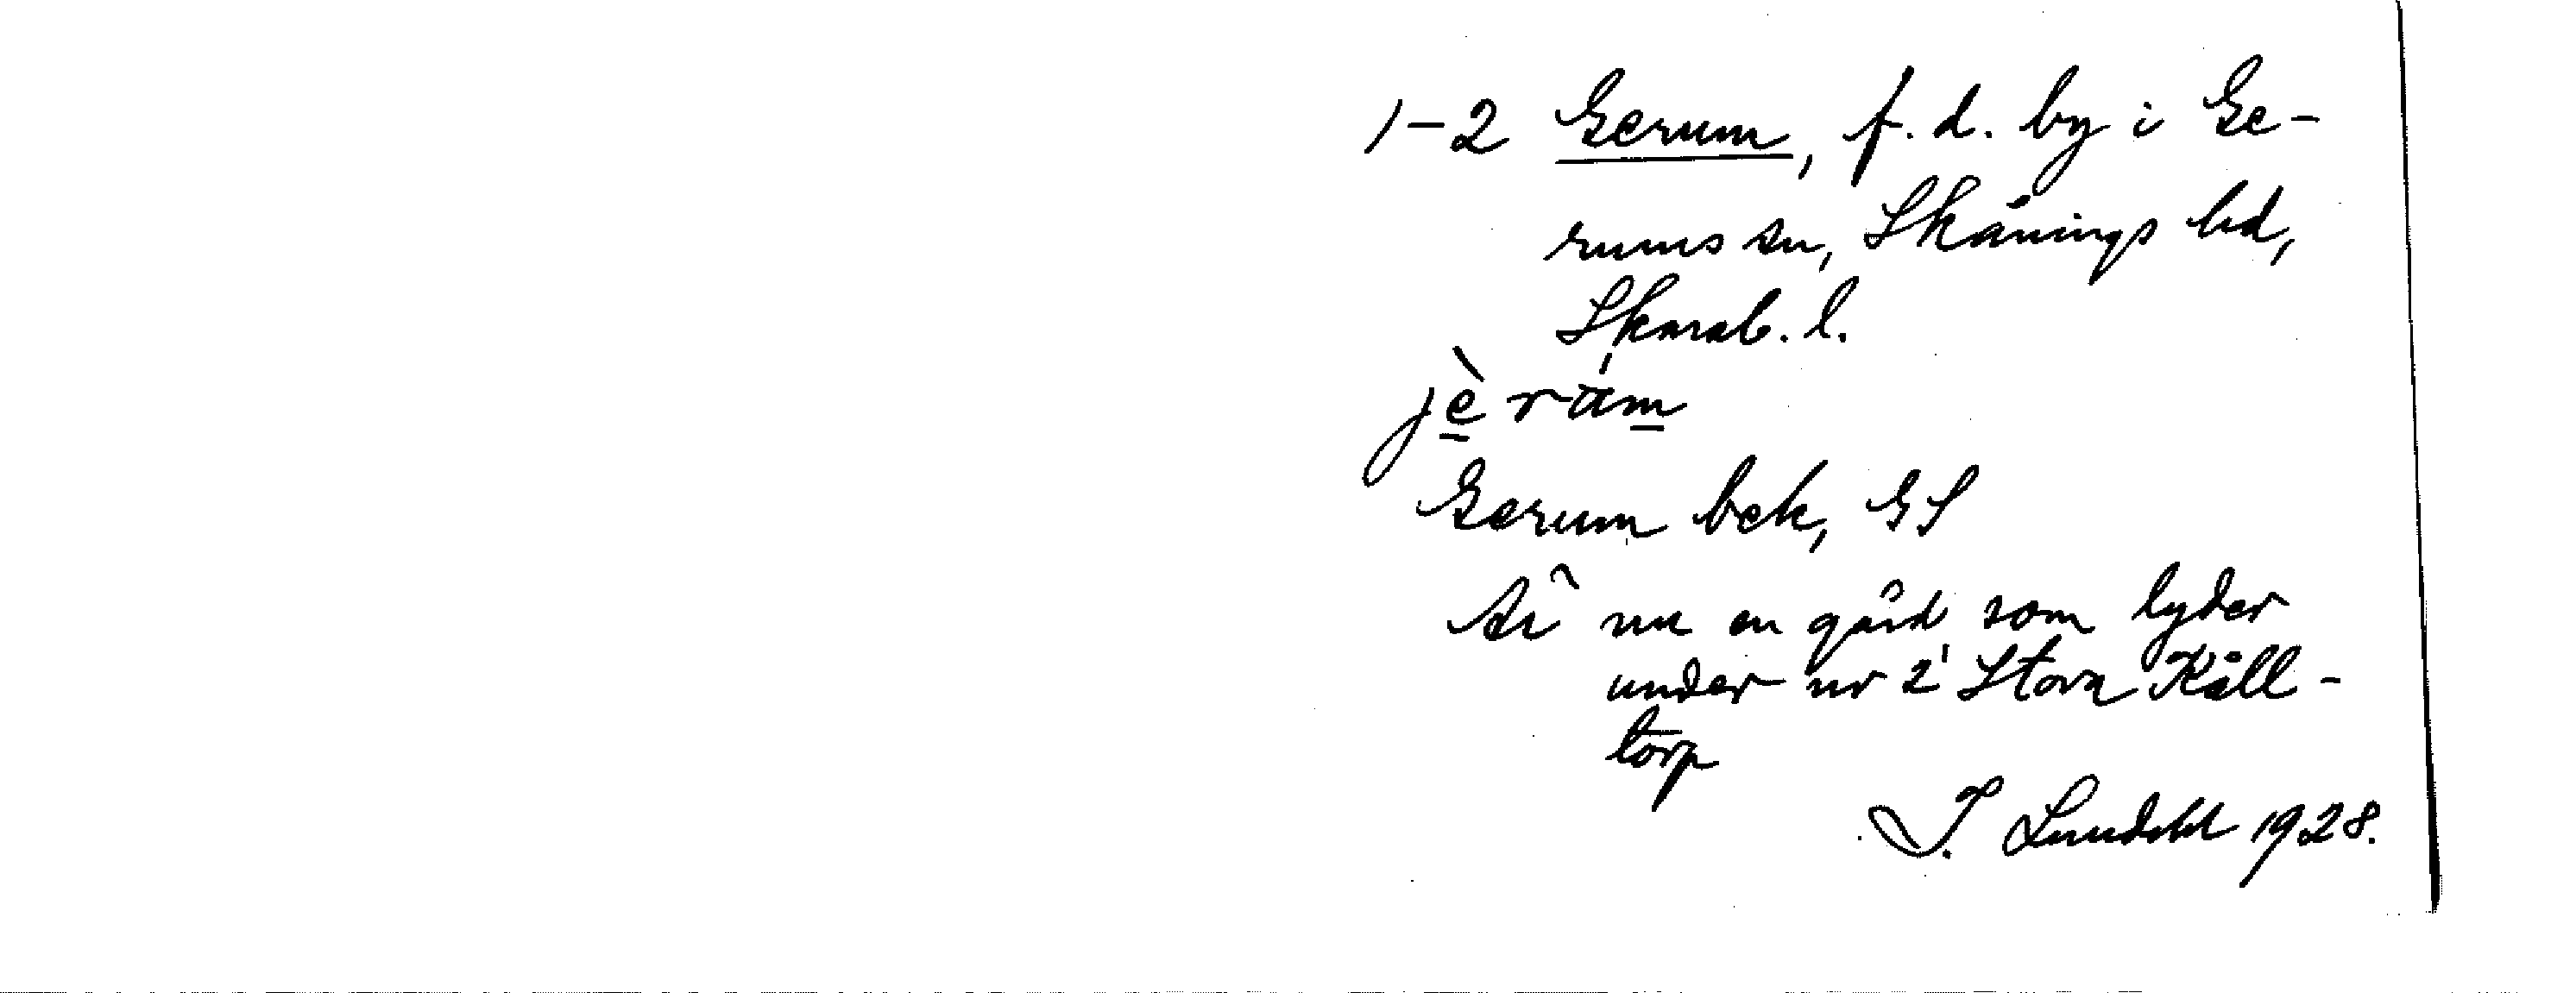 1-2 Gerum, f.d. by i Ge-
rums sn, Skånings hd,
Skarab. l.
jè räm
Gerum bek, GS
Är nu en gård som lyder
under nr 2 Stora Käll-
torp
J. Lundahl 1928.